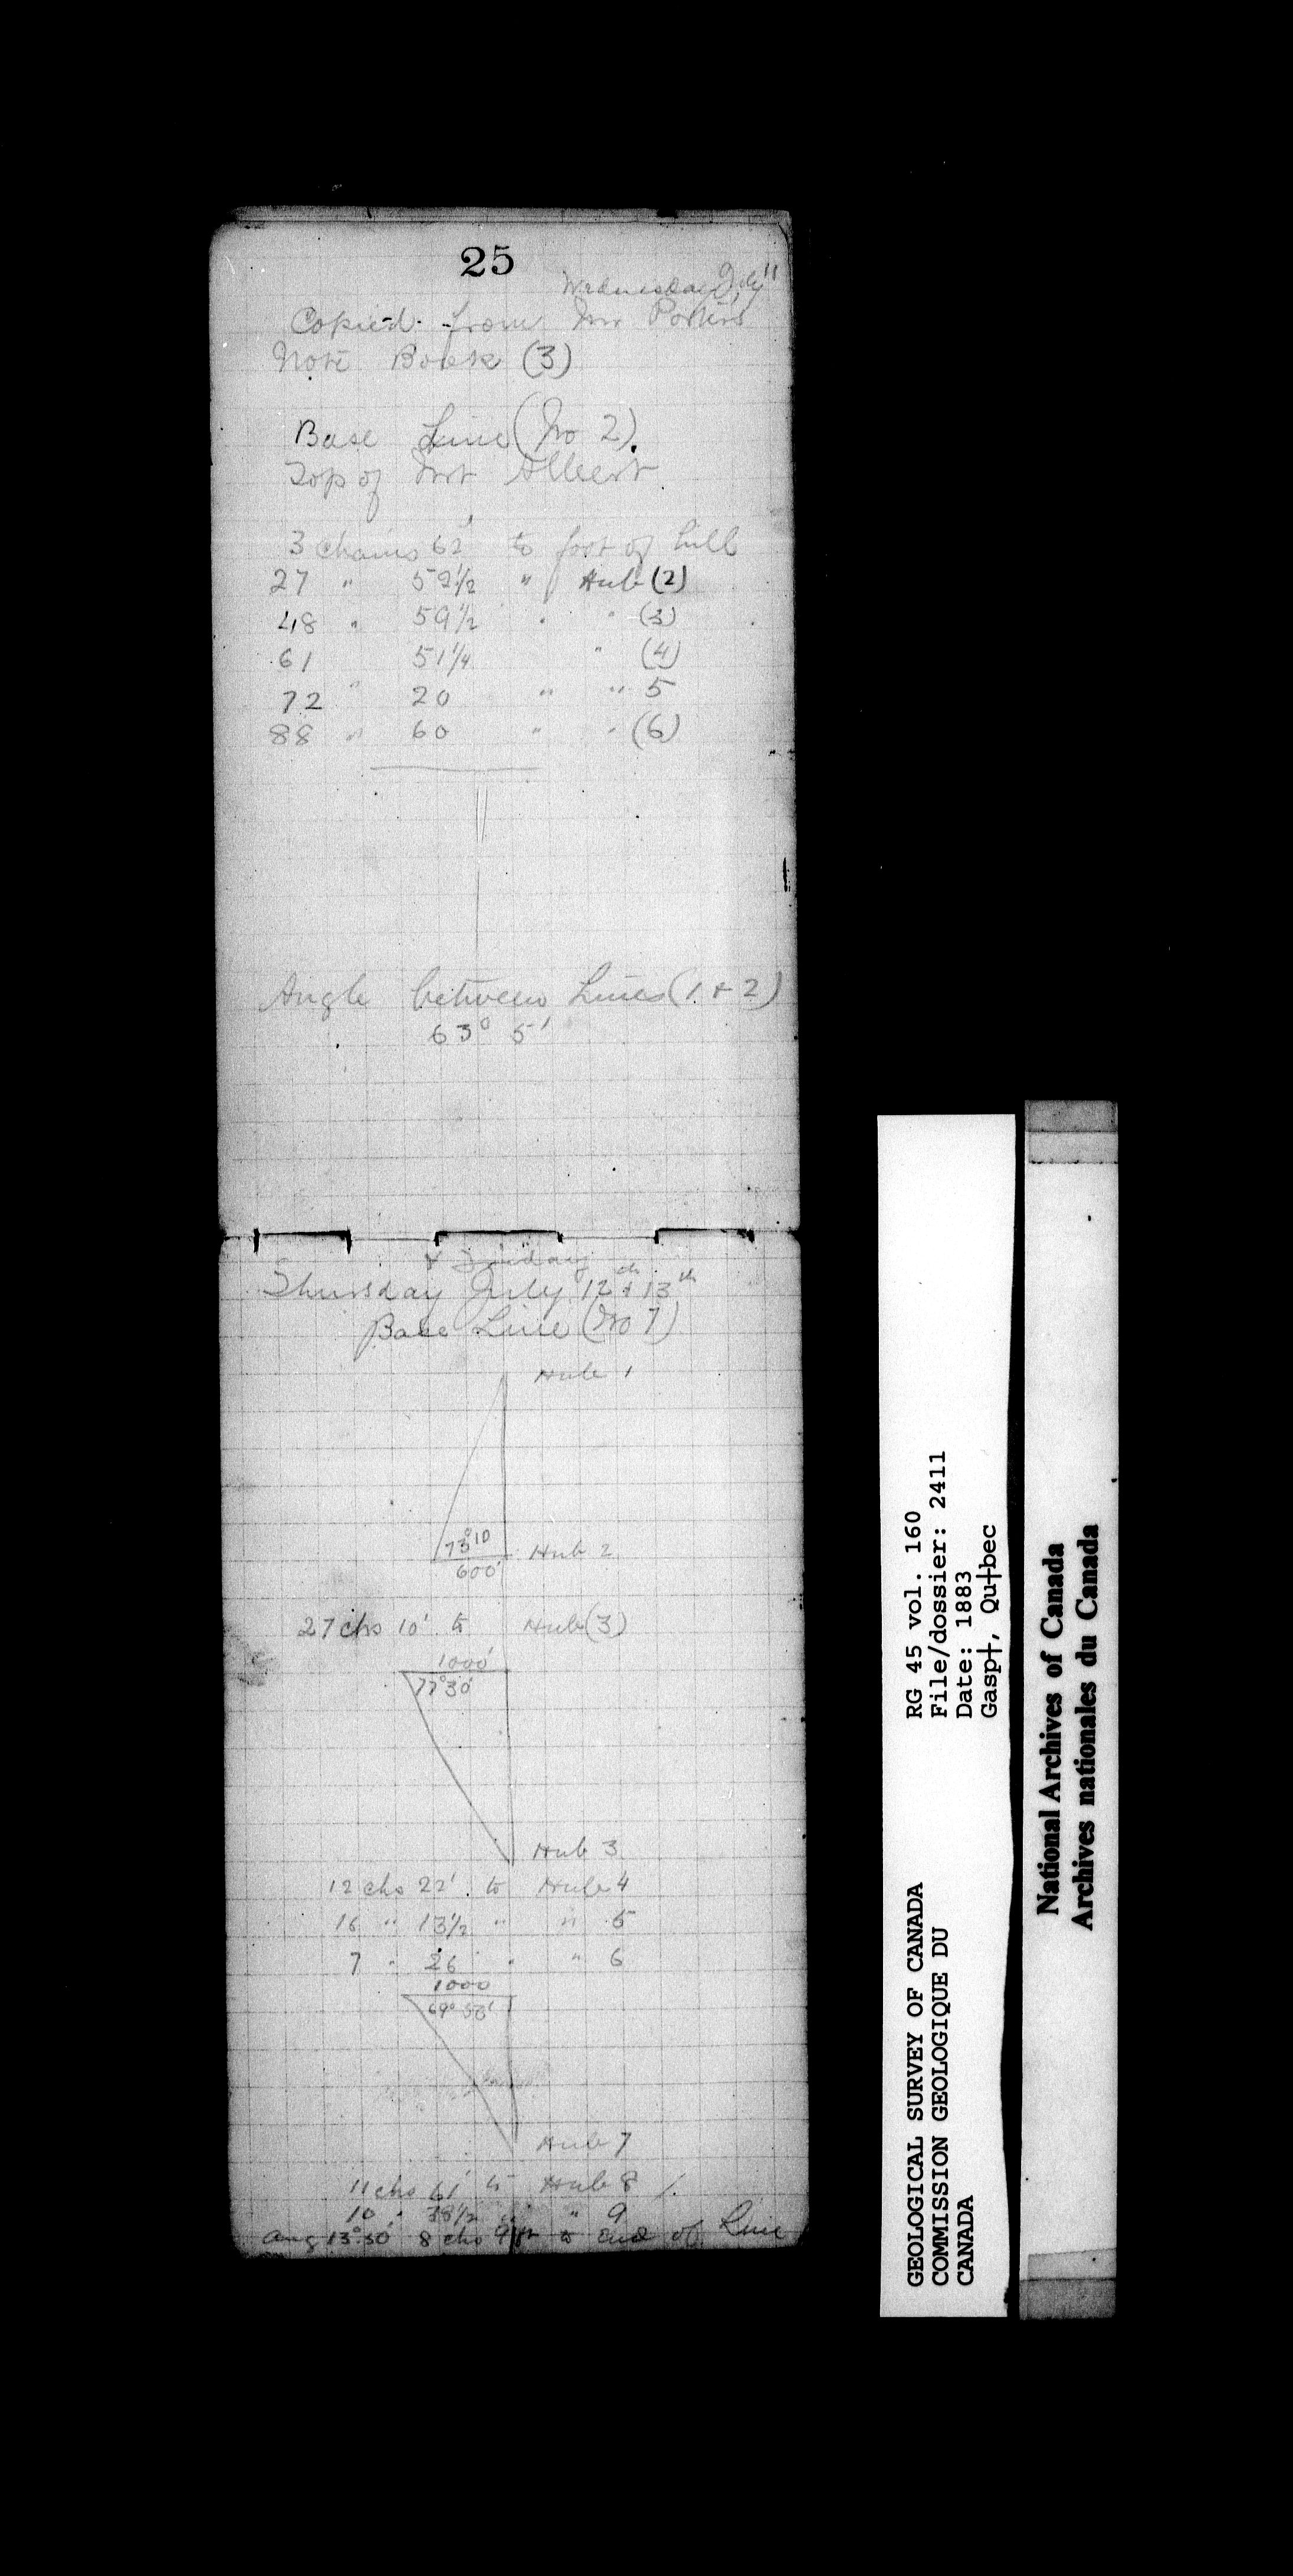 25
Wednesday July 11
Copied from Mr Porters
Note Book (3)
Base Line (No 2).
Top of Mt Albert
3 chains 62' to foot of hill
27 " 52½ " Hub (2)
48 " 59½ " " (3)
61 51¼ " (4)
72 " 20 " " 5
88 " 60 " " (6)
Angle between Lines (1 & 2)
63° 5'
& Friday
Thursday July 12th & 13th
Base Line (No 7)
Hub 1
73°10
Hub 2
600'
27 chs 10' to Hub (3)
1000'
77°30'
Hub 3
12 chs 22' to Hub 4
16 " 13½ " " 5
7 " 26 " " 6
1000
69° 58'
Hub 7
11 chs 61' to Hub 8
10 " 38½ " " 9
Ang 13°30' 8 chs 9 ft to end of Line
RG 45 vol. 160
File/dossier: 2411
Date: 1883
Gasp†, Qu†bec
GEOLOGICAL SURVEY OF CANADA
COMMISSION GEOLOGIQUE DU
CANADA
National Archives of Canada
Archives nationales du Canada